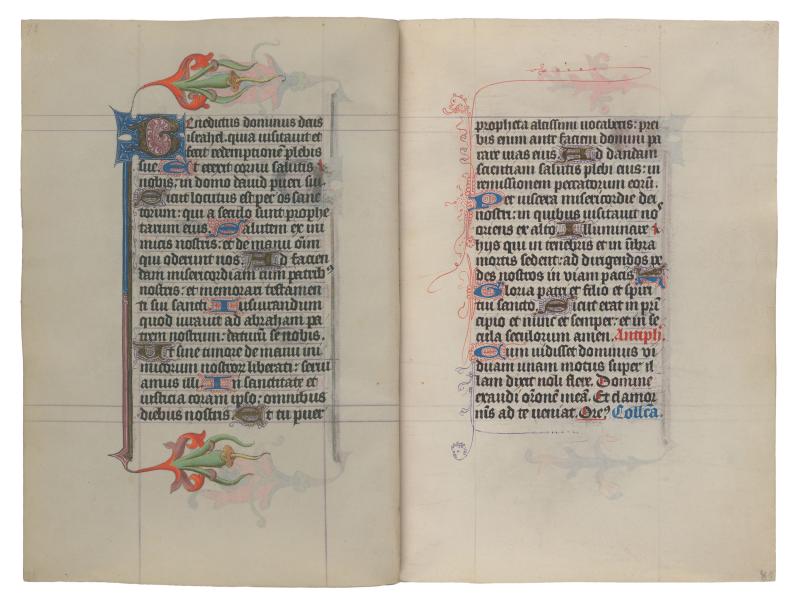 Benedictus dominus deus
israhel. quia uisitauit et
fecit redemptionē plebis
sue. Et erexit cornu salutis
nobis: in domo dauid pueri sui.
Sicut locutus est per os sanc
torum: qui a seculo sunt prophe
tarum eius. Salutem ex ini
micis nostris: et de manu oīm
qui oderunt nos. Ad facien
dam misericordiam cum patrib
nostris: et memorari testamen
ti sui sancti. Iusiurandum
quod iurauit ad abraham pa
trem nostrum: daturū se nobis.
Ut sine timore de manu ini
micorum nostror liberati: serui
amus illi. In sanctitate et
iusticia coram ipso: omnibus
diebus nostris. Et tu puer
propheta altissimi uocaberis: prei
bis enim ante faciem domini pa
rare uias eius. Ad dandam
scientiam salutis plebi eius: in
remissionem peccatorum eorū.
Per uiscera misericordie dei
nostri: in quibus uisitauit nos
oriens ex alto. Illuminare
hijs qui in tenebris et in ūbra
mortis sedent: ad dirigendos pe
des nostros in uiam pacis.
Gloria patri et filio et spiri
tui sancto. Sicut erat in prī
cipio et nunc et semper: et in se
cula seculorum amen. Antiph.
Cum uidisset dominus vi
duam unam motus super il
lam dixit noli flere. Domine
exaudi orōnem meā. Et clamor
meus ad te ueniat. Orem Collcā.